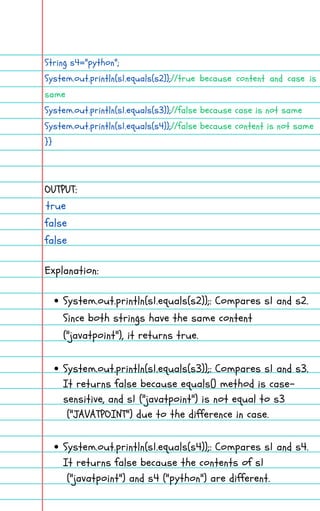 String s4="python";
System.out.println(s1.equals(s2));//true because content and case is
same
System.out.println(s1.equals(s3));//false because case is not same
System.out.println(s1.equals(s4));//false because content is not same
}}
OUTPUT:
true
false
false
Explanation:
• System.out.println(s1.equals(s2));: Compares s1 and s2.
Since both strings have the same content
("javatpoint"), it returns true.
• System.out.println(s1.equals(s3));: Compares s1 and s3.
It returns false because equals() method is case-
sensitive, and s1 ("javatpoint") is not equal to s3
("JAVATPOINT") due to the difference in case.
• System.out.println(s1.equals(s4));: Compares s1 and s4.
It returns false because the contents of s1
("javatpoint") and s4 ("python") are different.